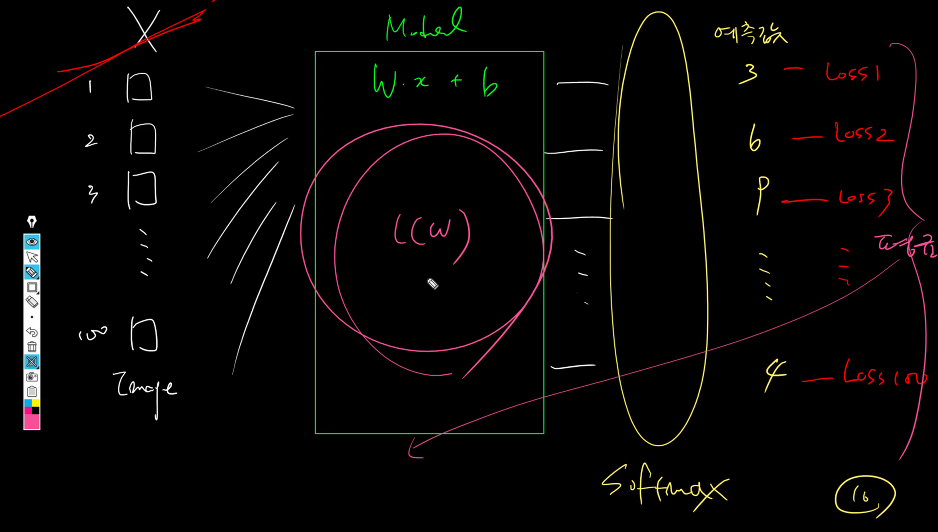 X
1
2
3
100
Image
Model
W·x + b
L(W)
Softmax
예측값
3 — Loss1
6 — Loss2
9 — Loss3
4 — Loss100
16